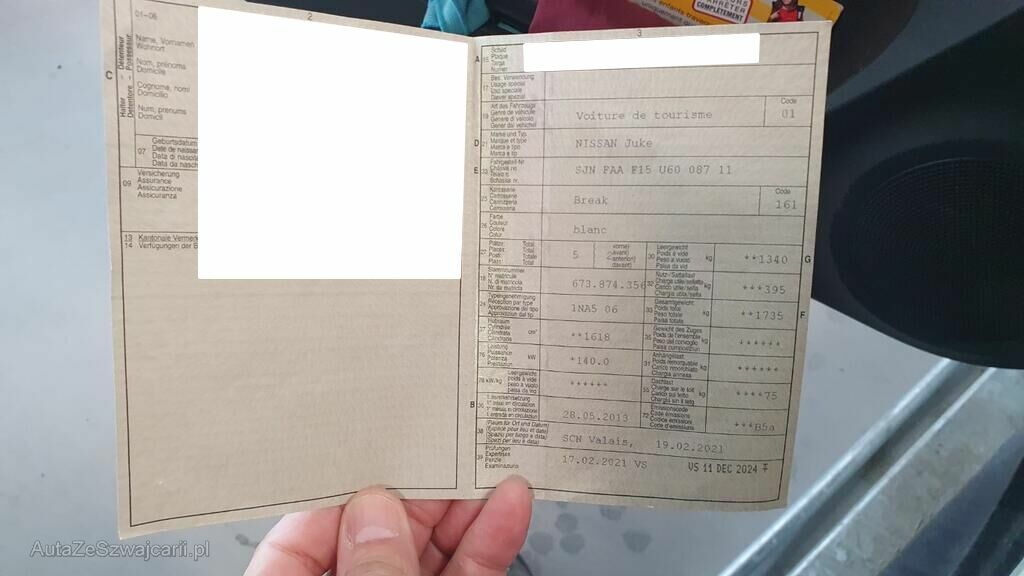 ARRETER
COMPLÈTEMENT
enfants traver
uniquement
2
3
01-06
C
Halter - Détenteur
Detentore - Possessur
Name, Vornamen
Wohnort
Nom, prénoms
Domicile
Cognome, nomi
Domicilio
Num, prenums
Domicil
07
Geburtsdatum
Date de naissan
Data di nascit
Data da nasch
09
Versicherung
Assurance
Assicurazione
Assicuranza
13 Kantonale Vermerk
14 Verfügungen der B
A
15
Schild
Plaque
Targa
Numer
17
Bes. Verwendung
Usage spécial
Uso speciale
Diever spezial
19
Art des Fahrzeugs
Genre de véhicule
Genere di veicolo
Gener dal vehichel
Voiture de tourisme
Code
01
D
21
Marke und Typ
Marque et type
Marca e tipo
Marca e tip
NISSAN Juke
E
23
Fahrgestell-Nr.
Châssis no
Telaio n.
Schassis nr.
SJN FAA F15 U60 087 11
25
Karosserie
Carrosserie
Carrozzeria
Carrossaria
Break
Code
161
26
Farbe
Couleur
Colore
Colur
blanc
27
Plätze: Total
Places: Total
Posti: Totale
Plazs: Total
5
vorne)
avant)
anteriori)
davant)
30
Leergewicht
Poids à vide
Peso a vuoto
Paisa da vid
kg
**1340
G
18
Stammnummer
N° matricule
N. di matricola
Nr. da matricla
673.874.356
32
Nutz-/Sattellast
Charge utile/sellette
Carico utile/sella
Chargia utila/sella
kg
***395
24
Typengenehmigung
Réception par type
Approvazione del tipo
Approvaziun dal tip
1NA5 06
33
Gesamtgewicht
Poids total
Peso totale
Paisa totala
kg
**1735
F
37
Hubraum
Cylindrée
Cilindrata
Cilindrada
cm³
**1618
35
Gewicht des Zuges
Poids de l'ensemble
Peso del convoglio
Paisa cumposiziun
kg
******
76
Leistung
Puissance
Potenza
Prestaziun
kW
*140.0
31
Anhängelast
Poids remorquable
Carico rimorchiato
Chargia annexa
kg
******
78 kW/kg
Leergewicht
poids à vide
peso a vuoto
paisa da vid
******
55
Dachlast
Charge sur le toit
Carico sul tetto
Chargia sin il tetg
kg
****75
B
36
1. Inverkehrsetzung
1re mise en circulation
1a messa in circolazione
1. entrada en circulaziun
28.05.2013
72
Emissionscode
Code émissions
Codice emissioni
Code d'emissiuns
***B5a
38
(Raum für Ort und Datum)
(Espace pour lieu et date)
(Spazio per luogo e data)
(Spazi per lieu e data)
SCN Valais, 19.02.2021
39
Prüfungen
Expertises
Perizie
Examinaziuns
17.02.2021 VS
VS 11 DEC 2024
AutaZeSzwajcarii.pl